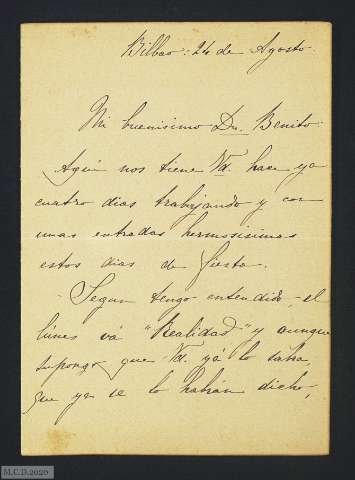 Bilbao: 24 de Agosto.
Mi buenisimo Dn. Benito:
Aqui nos tiene Vd. hace ya
cuatro dias trabajando y con
unas entradas hermosisimas
estos dias de fiesta.
Segun tengo entendido, el
lúnes vá "Realidad" y aunque
supongo que Vd. yá lo sabra,
que ya se lo habrán dicho,
M.C.D.2020